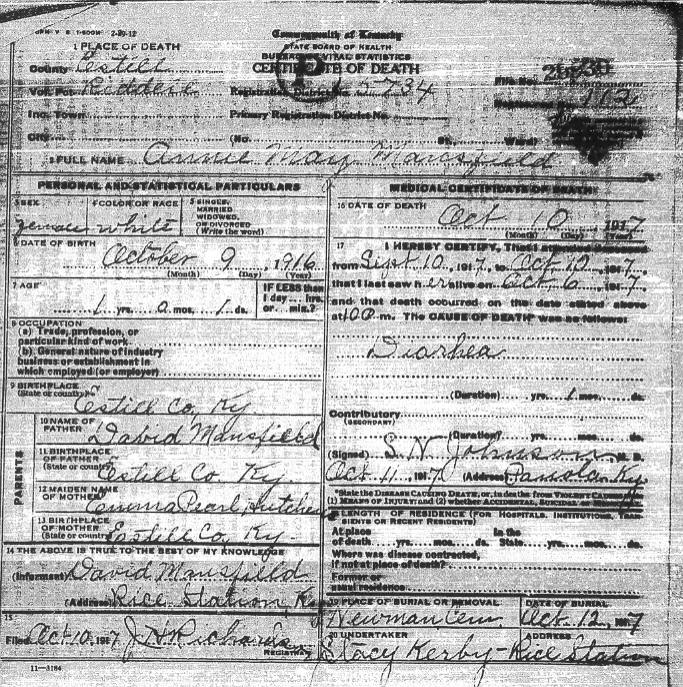 Commonwealth of Kentucky
STATE BOARD OF HEALTH
BUREAU OF VITAL STATISTICS
CERTIFICATE OF DEATH
1 PLACE OF DEATH
County Estill
Vot. Pct.
Registration District 5734
File No.
Registered No. 102
Inc. Town
Primary Registration District No.
City (No. St., Ward)
2 FULL NAME Annie May Mansfield
PERSONAL AND STATISTICAL PARTICULARS
3 SEX female
4 COLOR OR RACE white
5 SINGLE, MARRIED WIDOWED, OR DIVORCED (Write the word)
6 DATE OF BIRTH
October 9, 1916
(Month) (Day) (Year)
7 AGE
1 yrs. 0 mos. 1 ds.
IF LESS than 1 day... hrs. or... min.?
8 OCCUPATION
(a) Trade, profession, or particular kind of work
(b) General nature of industry business or establishment in which employed (or employer)
9 BIRTHPLACE
(State or country)
Estill Co, Ky
PARENTS
10 NAME OF FATHER
David Mansfield
11 BIRTHPLACE OF FATHER
(State or country)
Estill Co Ky.
12 MAIDEN NAME OF MOTHER
Emma Pearl
13 BIRTHPLACE OF MOTHER
(State or country)
Estill Co Ky.
14 THE ABOVE IS TRUE TO THE BEST OF MY KNOWLEDGE
(Informant) David Mansfield
(Address) Rice Station, Ky
15
Filed Oct 10, 1917 J H Richards
REGISTRAR
MEDICAL CERTIFICATE OF DEATH
16 DATE OF DEATH
Oct 10 1917
(Month) (Day) (Year)
17 I HEREBY CERTIFY, That I attended deceased
from Sept 10, 1917, to Oct 10, 1917,
that I last saw her alive on Oct 6, 1917,
and that death occurred on the date stated above
at 10 P m. The CAUSE OF DEATH was as follows:
Diarhea
(Duration) yrs. 1 mos. ds.
Contributory
(SECONDARY)
(Duration) yrs. mos. ds.
(Signed) S. N. Johnson M. D.
Oct 11, 1917 (Address) Panola, Ky
*State the DISEASE CAUSING DEATH, or, in deaths from VIOLENT CAUSES
(1) MEANS OF INJURY; and (2) whether ACCIDENTAL, SUICIDAL or
LENGTH OF RESIDENCE (FOR HOSPITALS, INSTITUTIONS, TRANSIENTS OR RECENT RESIDENTS)
At place of death yrs. mos. ds. In the State yrs. mos. ds.
Where was disease contracted, if not at place of death?
Former or usual residence
19 PLACE OF BURIAL OR REMOVAL
Newman Cem.
DATE OF BURIAL
Oct. 12, 1917
20 UNDERTAKER
Stacy Kerby
ADDRESS
Rice Station
11—3184